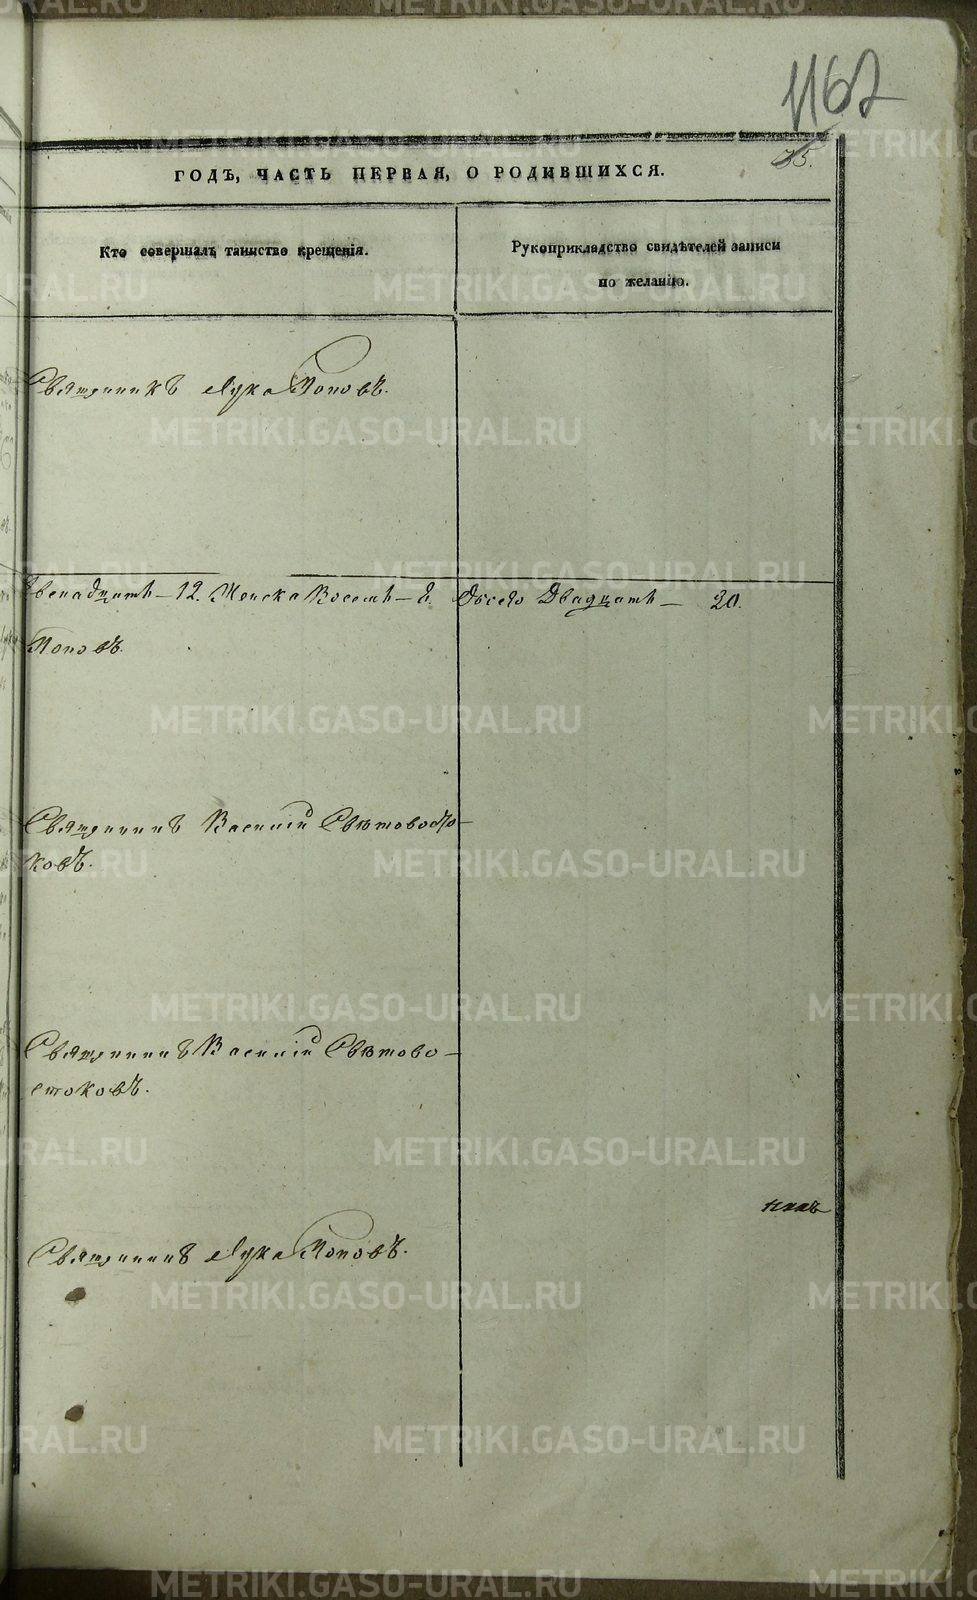 1162
75.
ГОДЪ, ЧАСТЬ ПЕРВАЯ, О РОДИВШИХСЯ.
Кто совершалъ таинство крещенія.
Рукоприкладство свидѣтелей записи
по желанію.
Священникъ Лука Поповъ.
Двенадцать – 12. Женска Восемь – 8. Обсего Двадцать – 20.
Поповъ.
Священникъ Василій Свѣтовосто-
ковъ.
Священникъ Василій Свѣтово-
стоковъ.
Священникъ Лука Поповъ.
METRIKI.GASO-URAL.RU